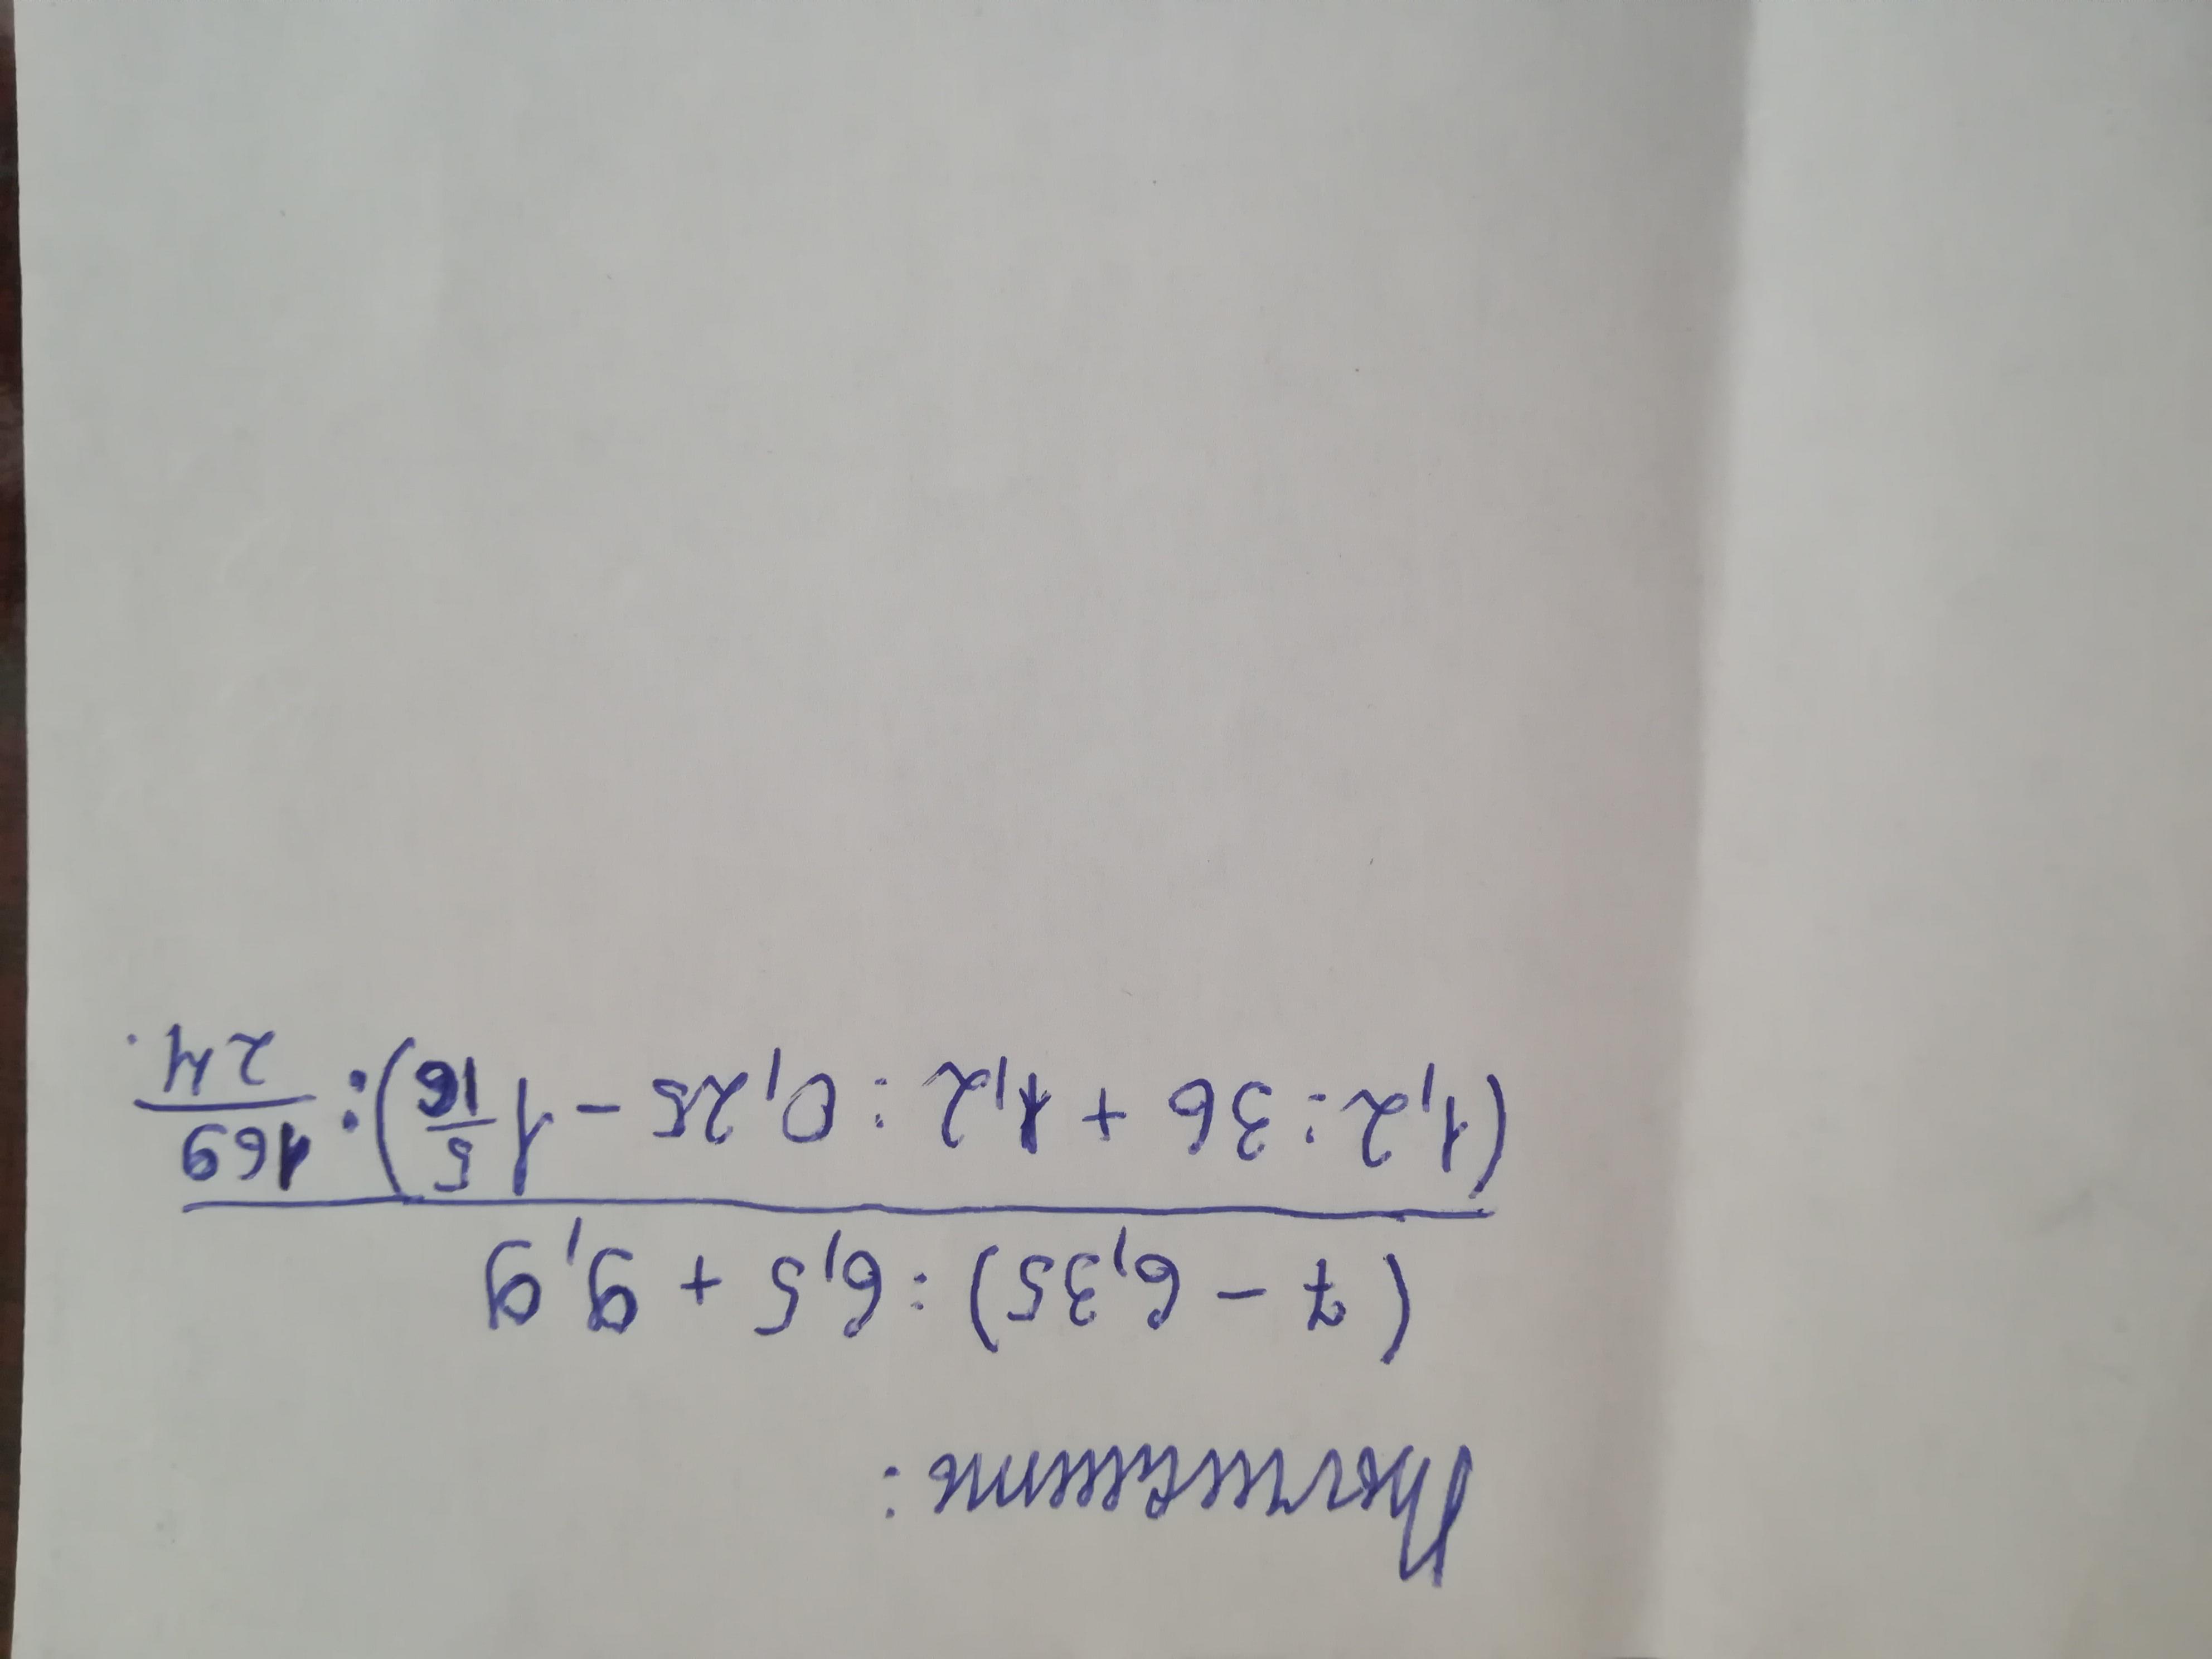 Вычислите:
(7 - 6,35) : 6,5 + 9,9
(1,2 : 36 + 1,2 : 0,25 - 1 5/16) : 169/24.